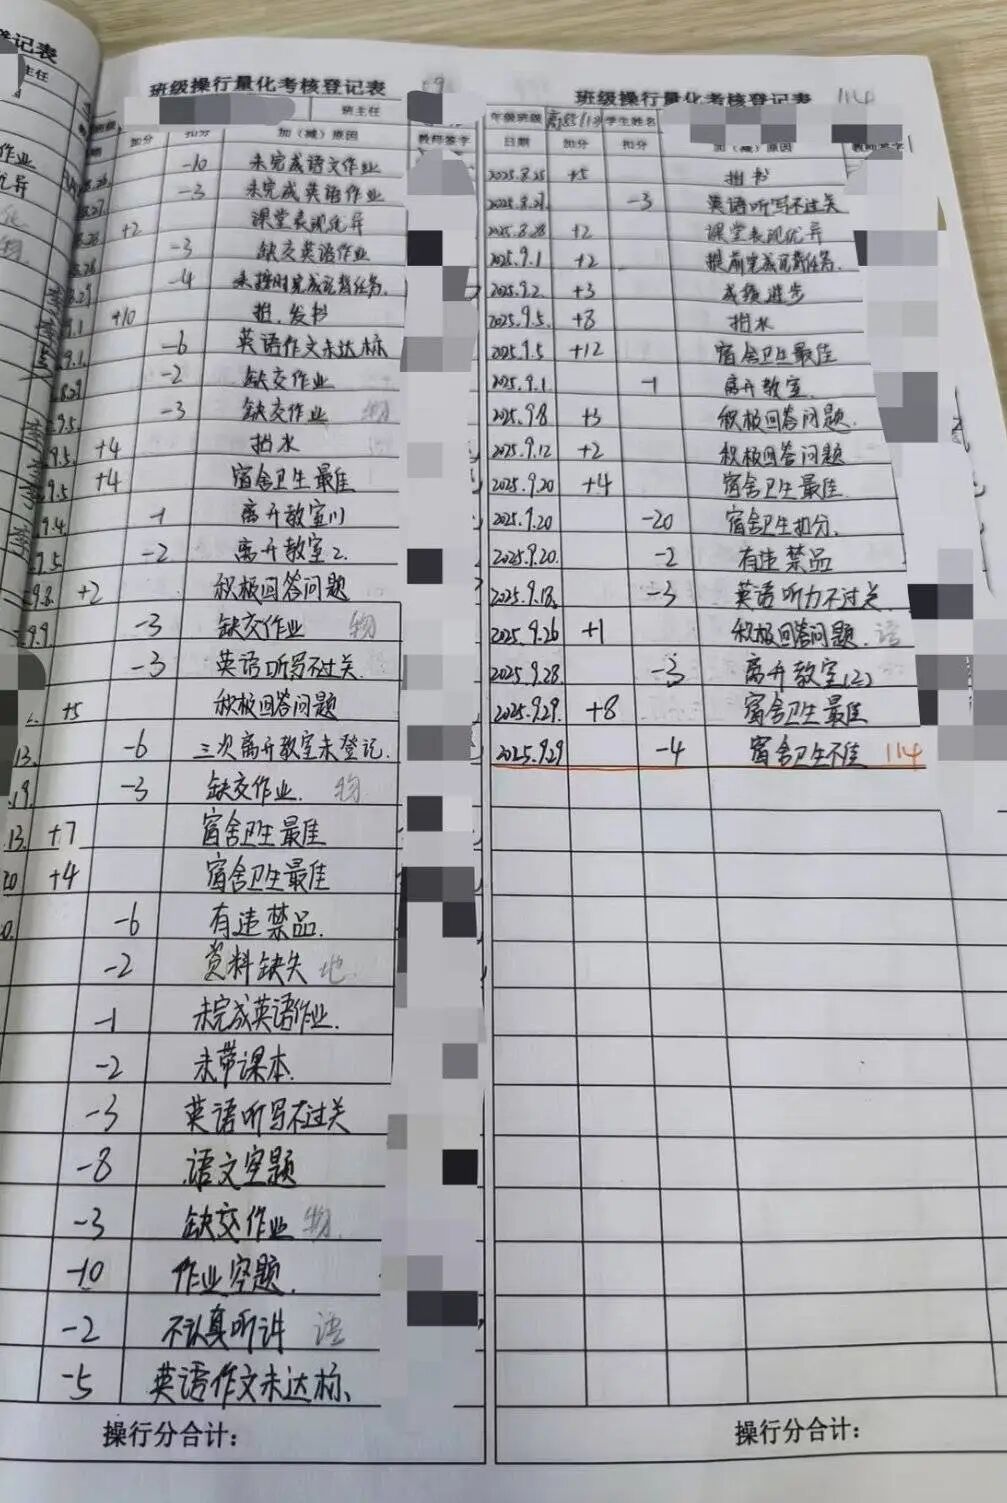 登记表
主任
作业
优异
班级操行量化考核登记表
班主任
加分 扣分 加（减）原因 教师签字
-10 未完成语文作业
-3 未完成英语作业
+2 课堂表现优异
-3 缺交英语作业
-4 未按时完成背任务
+10 搬、发书
9.1 -6 英语作文未达标
-2 缺交作业
9.5 -3 缺交作业 物
9.5 +4 抬水
9.5 +4 宿舍卫生最佳
9.4 -1 离开教室
-2 离开教室2.
9.8 +2 积极回答问题
9.9 -3 缺交作业 物
-3 英语听写不过关
+5 积极回答问题
13. -6 三次离开教室未登记.
19. -3 缺交作业. 物
13. +7 宿舍卫生最佳
20 +4 宿舍卫生最佳
-6 有违禁品.
-2 资料缺失 地
-1 未完成英语作业.
-2 未带课本.
-3 英语听写不过关
-8 语文空题
-3 缺交作业 物.
-10 作业空题.
-2 不认真听讲 语
-5 英语作文未达标、
操行分合计：
班级操行量化考核登记表 114
年级班级 学生姓名
日期 加分 扣分 加（减）原因
2025.8.25 +5 抬书
2025.8.27 -3 英语听写不过关
2025.8.28 +2 课堂表现优异
2025.9.1 +2 提前完成背任务.
2025.9.2 +3 成绩进步
2025.9.5. +8 抬水
2025.9.5 +12 宿舍卫生最佳
2025.9.1 -1 离开教室.
2025.9.8 +3 积极回答问题.
2025.9.12 +2 积极回答问题
2025.9.20 +4 宿舍卫生最佳
2025.9.20 -20 宿舍卫生扣分.
2025.9.20. -2 有违禁品
2025.9.18. -3 英语听力不过关
2025.9.26 +1 积极回答问题. 语
2025.9.28. -3 离开教室(2)
2025.9.29. +8 宿舍卫生最佳
2025.9.29 -4 宿舍卫生不佳 114
操行分合计：